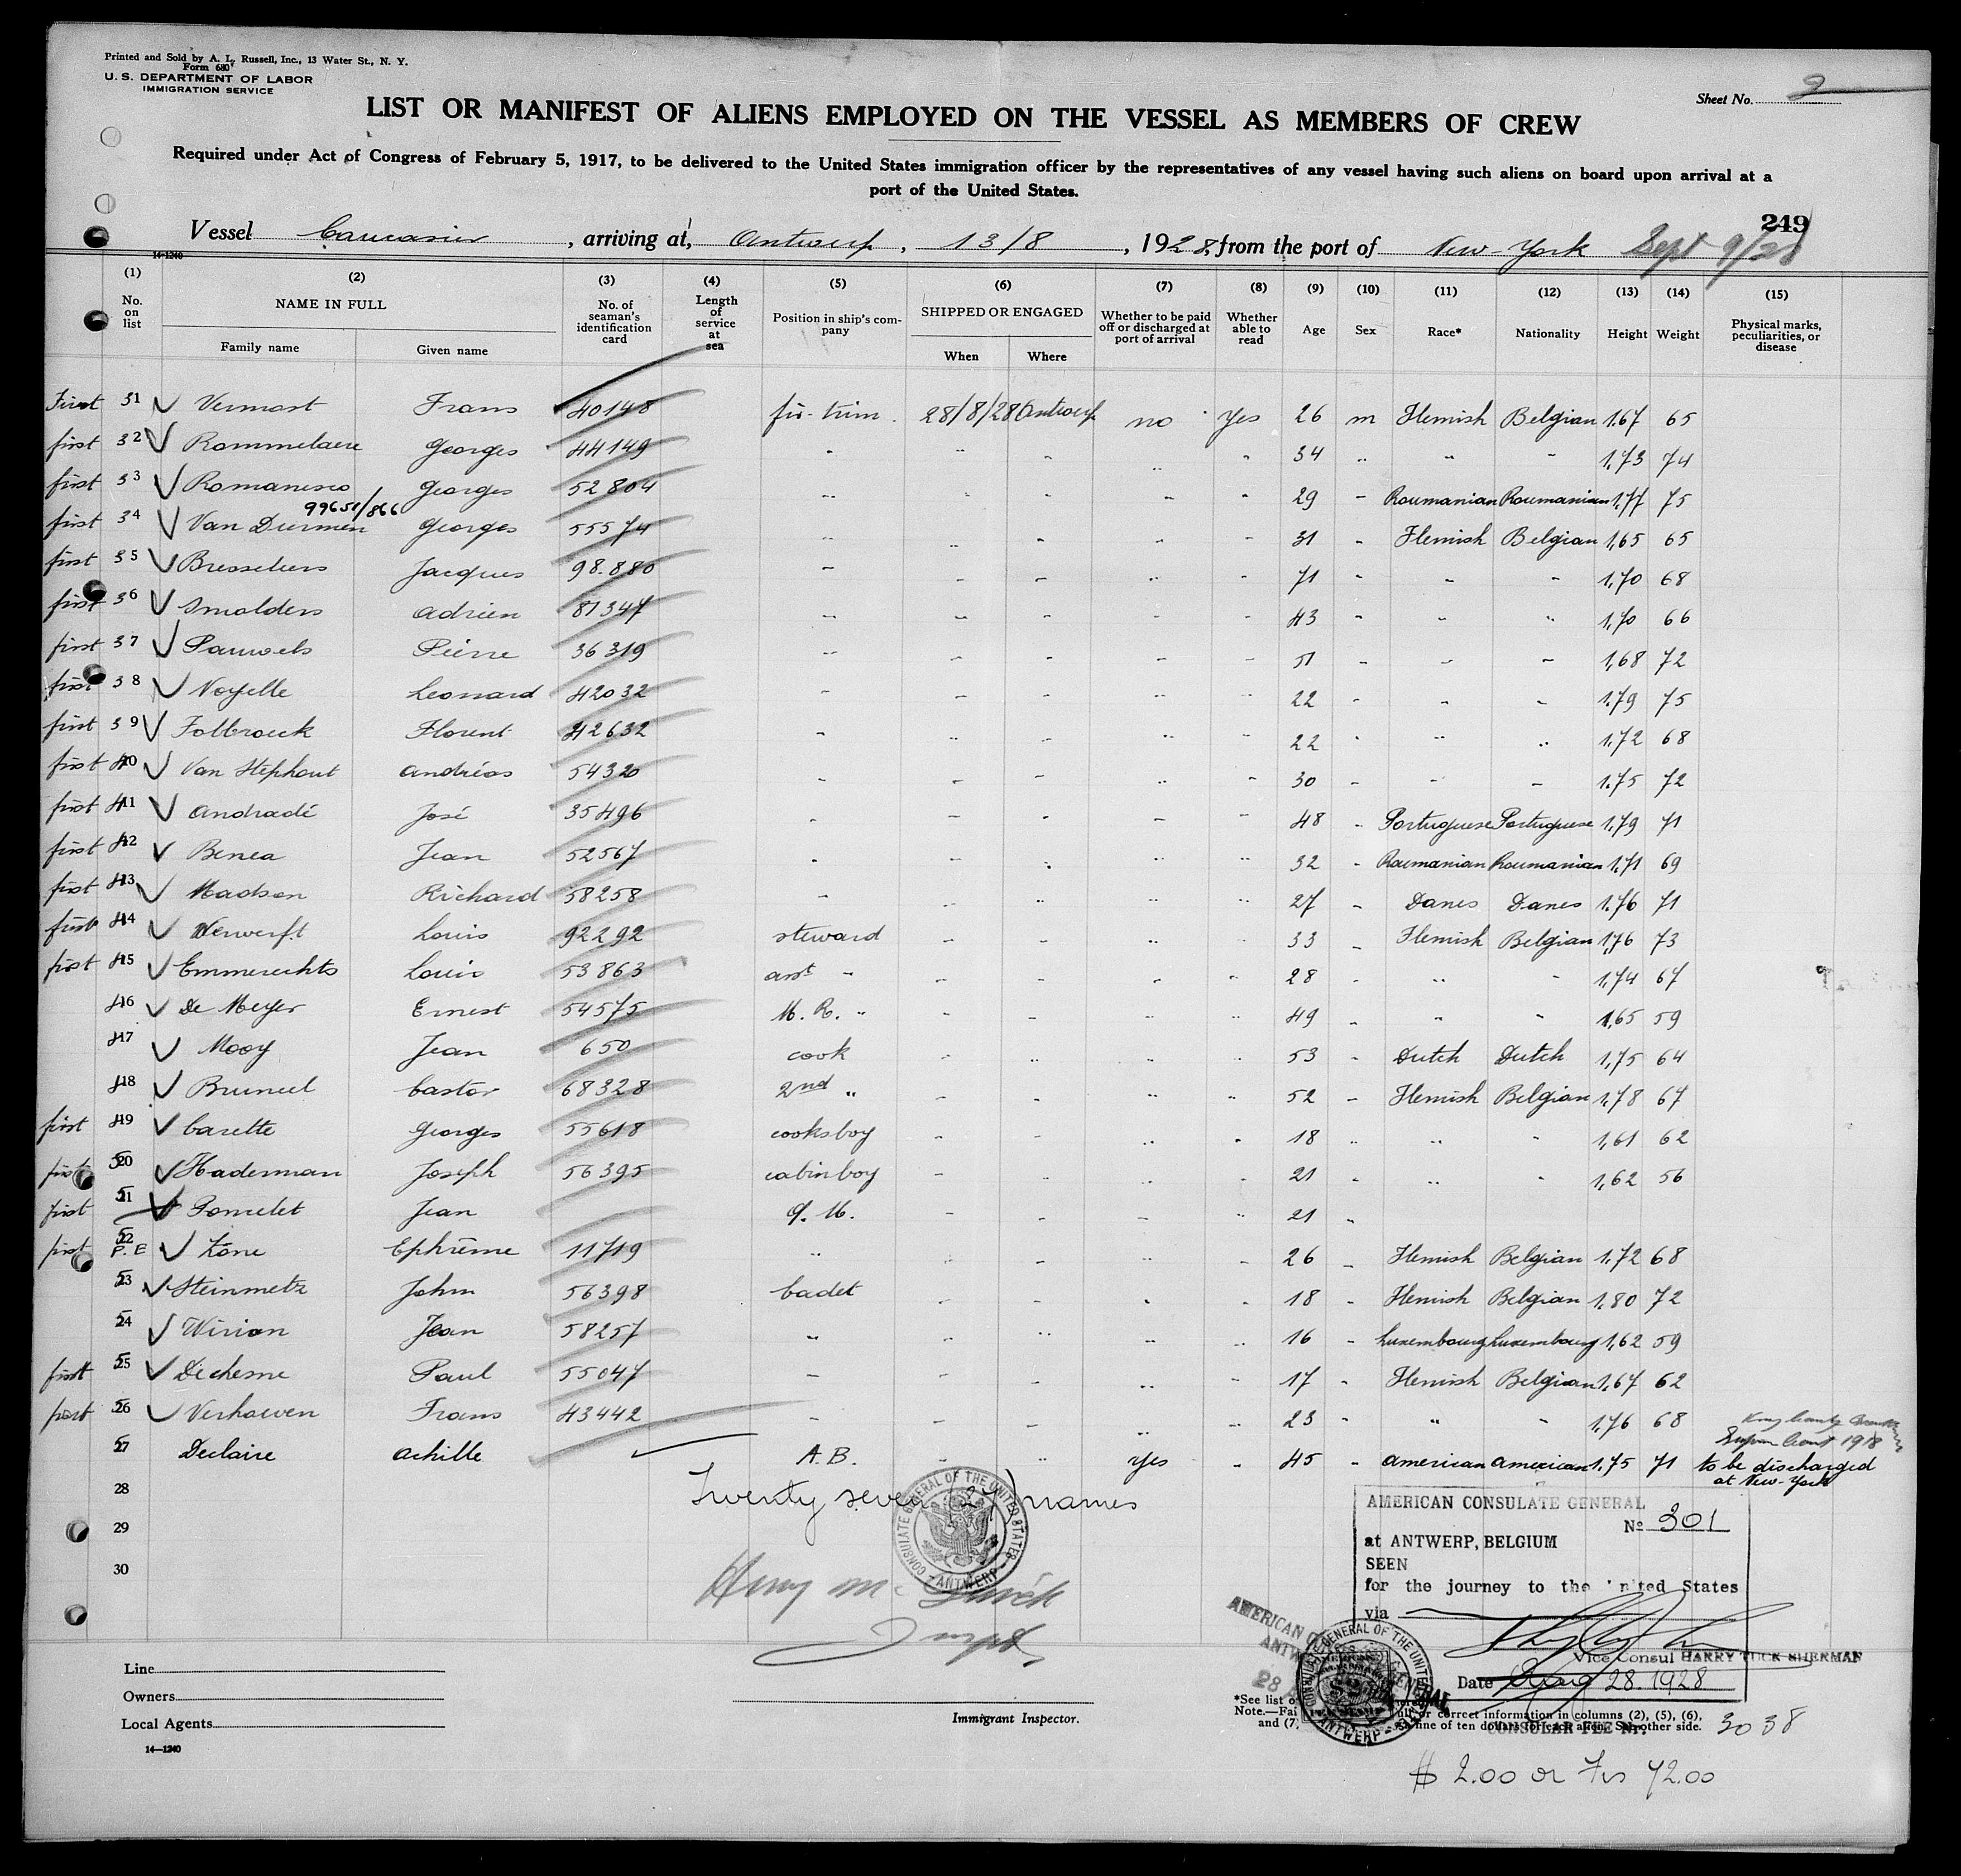 Printed and Sold by A. L. Russell, Inc., 13 Water St., N. Y.
Form 680
U. S. DEPARTMENT OF LABOR
IMMIGRATION SERVICE
Sheet No. 2
LIST OR MANIFEST OF ALIENS EMPLOYED ON THE VESSEL AS MEMBERS OF CREW
Required under Act of Congress of February 5, 1917, to be delivered to the United States immigration officer by the representatives of any vessel having such aliens on board upon arrival at a
port of the United States.
249
Vessel Caucasier, arriving at, Antwerp, 13/8, 1928, from the port of New-York Sept 9/28
14-1240
(1) (2) (3) (4) (5) (6) (7) (8) (9) (10) (11) (12) (13) (14) (15)
No. on list NAME IN FULL Family name Given name No. of seaman's identification card Length of service at sea Position in ship's company SHIPPED OR ENGAGED When Where Whether to be paid off or discharged at port of arrival Whether able to read Age Sex Race* Nationality Height Weight Physical marks, peculiarities, or disease
First 31 Vermast Frans 40148 fir-trim. 28/8/28 Antwerp no Yes 26 m Flemish Belgian 1.67 65
first 32 Rommelaere Georges 44149 " " " " " 34 " " " 1,73 74
first 33 Romanesco Georges 52804 " " " " " 29 " Roumanian Roumanian 1.77 75
99650/866
first 34 Van Durmen Georges 55574 " " " " 31 " Flemish Belgian 1,65 65
first 35 Bresseleers Jacques 98.880 " " " " " 71 " " " 1,70 68
first 36 Smolders Adrien 81347 " " " " " 43 " " " 1,70 66
first 37 Pauwels Pierre 36319 " " " " " 51 " " " 1,68 72
first 38 Noyelle Leonard 42032 " " " " " 22 " " " 1.79 75
first 39 Folbrouck Florent 42632 " " " " " 22 " " " 1.72 68
first 40 Van Stephout Andréas 54320 " " " " " 30 " " " 1.75 72
first 41 Andradé José 35496 " " " " " 48 " Portuguese Portuguese 1,79 71
first 42 Benea Jean 52567 " " " " " 32 " Roumanian Roumanian 1.71 69
first 43 Madsen Richard 58258 " " " " " 27 " Danes Danes 1.76 71
first 44 Werwerft Louis 92292 steward " " " " 33 " Flemish Belgian 1,76 73
first 45 Emmerechts Louis 53863 asst " " " " " 28 " " " 1,74 67
46 De Meyer Ernest 54575 M. R. " " " " " 49 " " " 1,65 59
47 Mooy Jean 650 cook " " " " 53 " Dutch Dutch 1,75 64
48 Bruneel Castor 68328 2nd " " " " " 52 " Flemish Belgian 1,78 67
first 49 Carette Georges 55618 cooksboy " " " " 18 " " " 1,61 62
first 50 Haderman Joseph 56395 cabinboy " " " " 21 " " " 1,62 56
first 51 Poncelet Jean q. M. " " " " 21 "
first 52 P.E Zone Ephrème 11719 " " " " " 26 " Flemish Belgian 1,72 68
53 Steinmetz John 56398 Cadet " " " " 18 " Flemish Belgian 1.80 72
54 Wirion Jean 58257 " " " " " 16 " Luxembourg Luxembourg 1,62 59
first 55 Dechesne Paul 55047 " " " " " 17 " Flemish Belgian 1,67 62
first 56 Verhoeven Frans 43442 " " " " " 23 " " " 1,76 68
57 Declaire Achille A.B. " " Yes 45 " American American 1,75 71 to be discharged
at New-York
Supreme Court 1918
28
29
30
Twenty seven (27) names
CONSULATE GENERAL OF THE UNITED STATES ANTWERP
AMERICAN CONSULATE GENERAL
No 301
at ANTWERP, BELGIUM
SEEN
for the journey to the United States
via
Vice Consul HARRY TUCK SHERMAN
Date Aug 28.1928
Line
Owners
Local Agents
14—1240
Immigrant Inspector.
*See list o
Note.—Fai full or correct information in columns (2), (5), (6),
and (7) fine of ten dollars for each alien. See other side.
CONSULAR FEE Nr. 3038
$ 2.00 or Frs 72.00